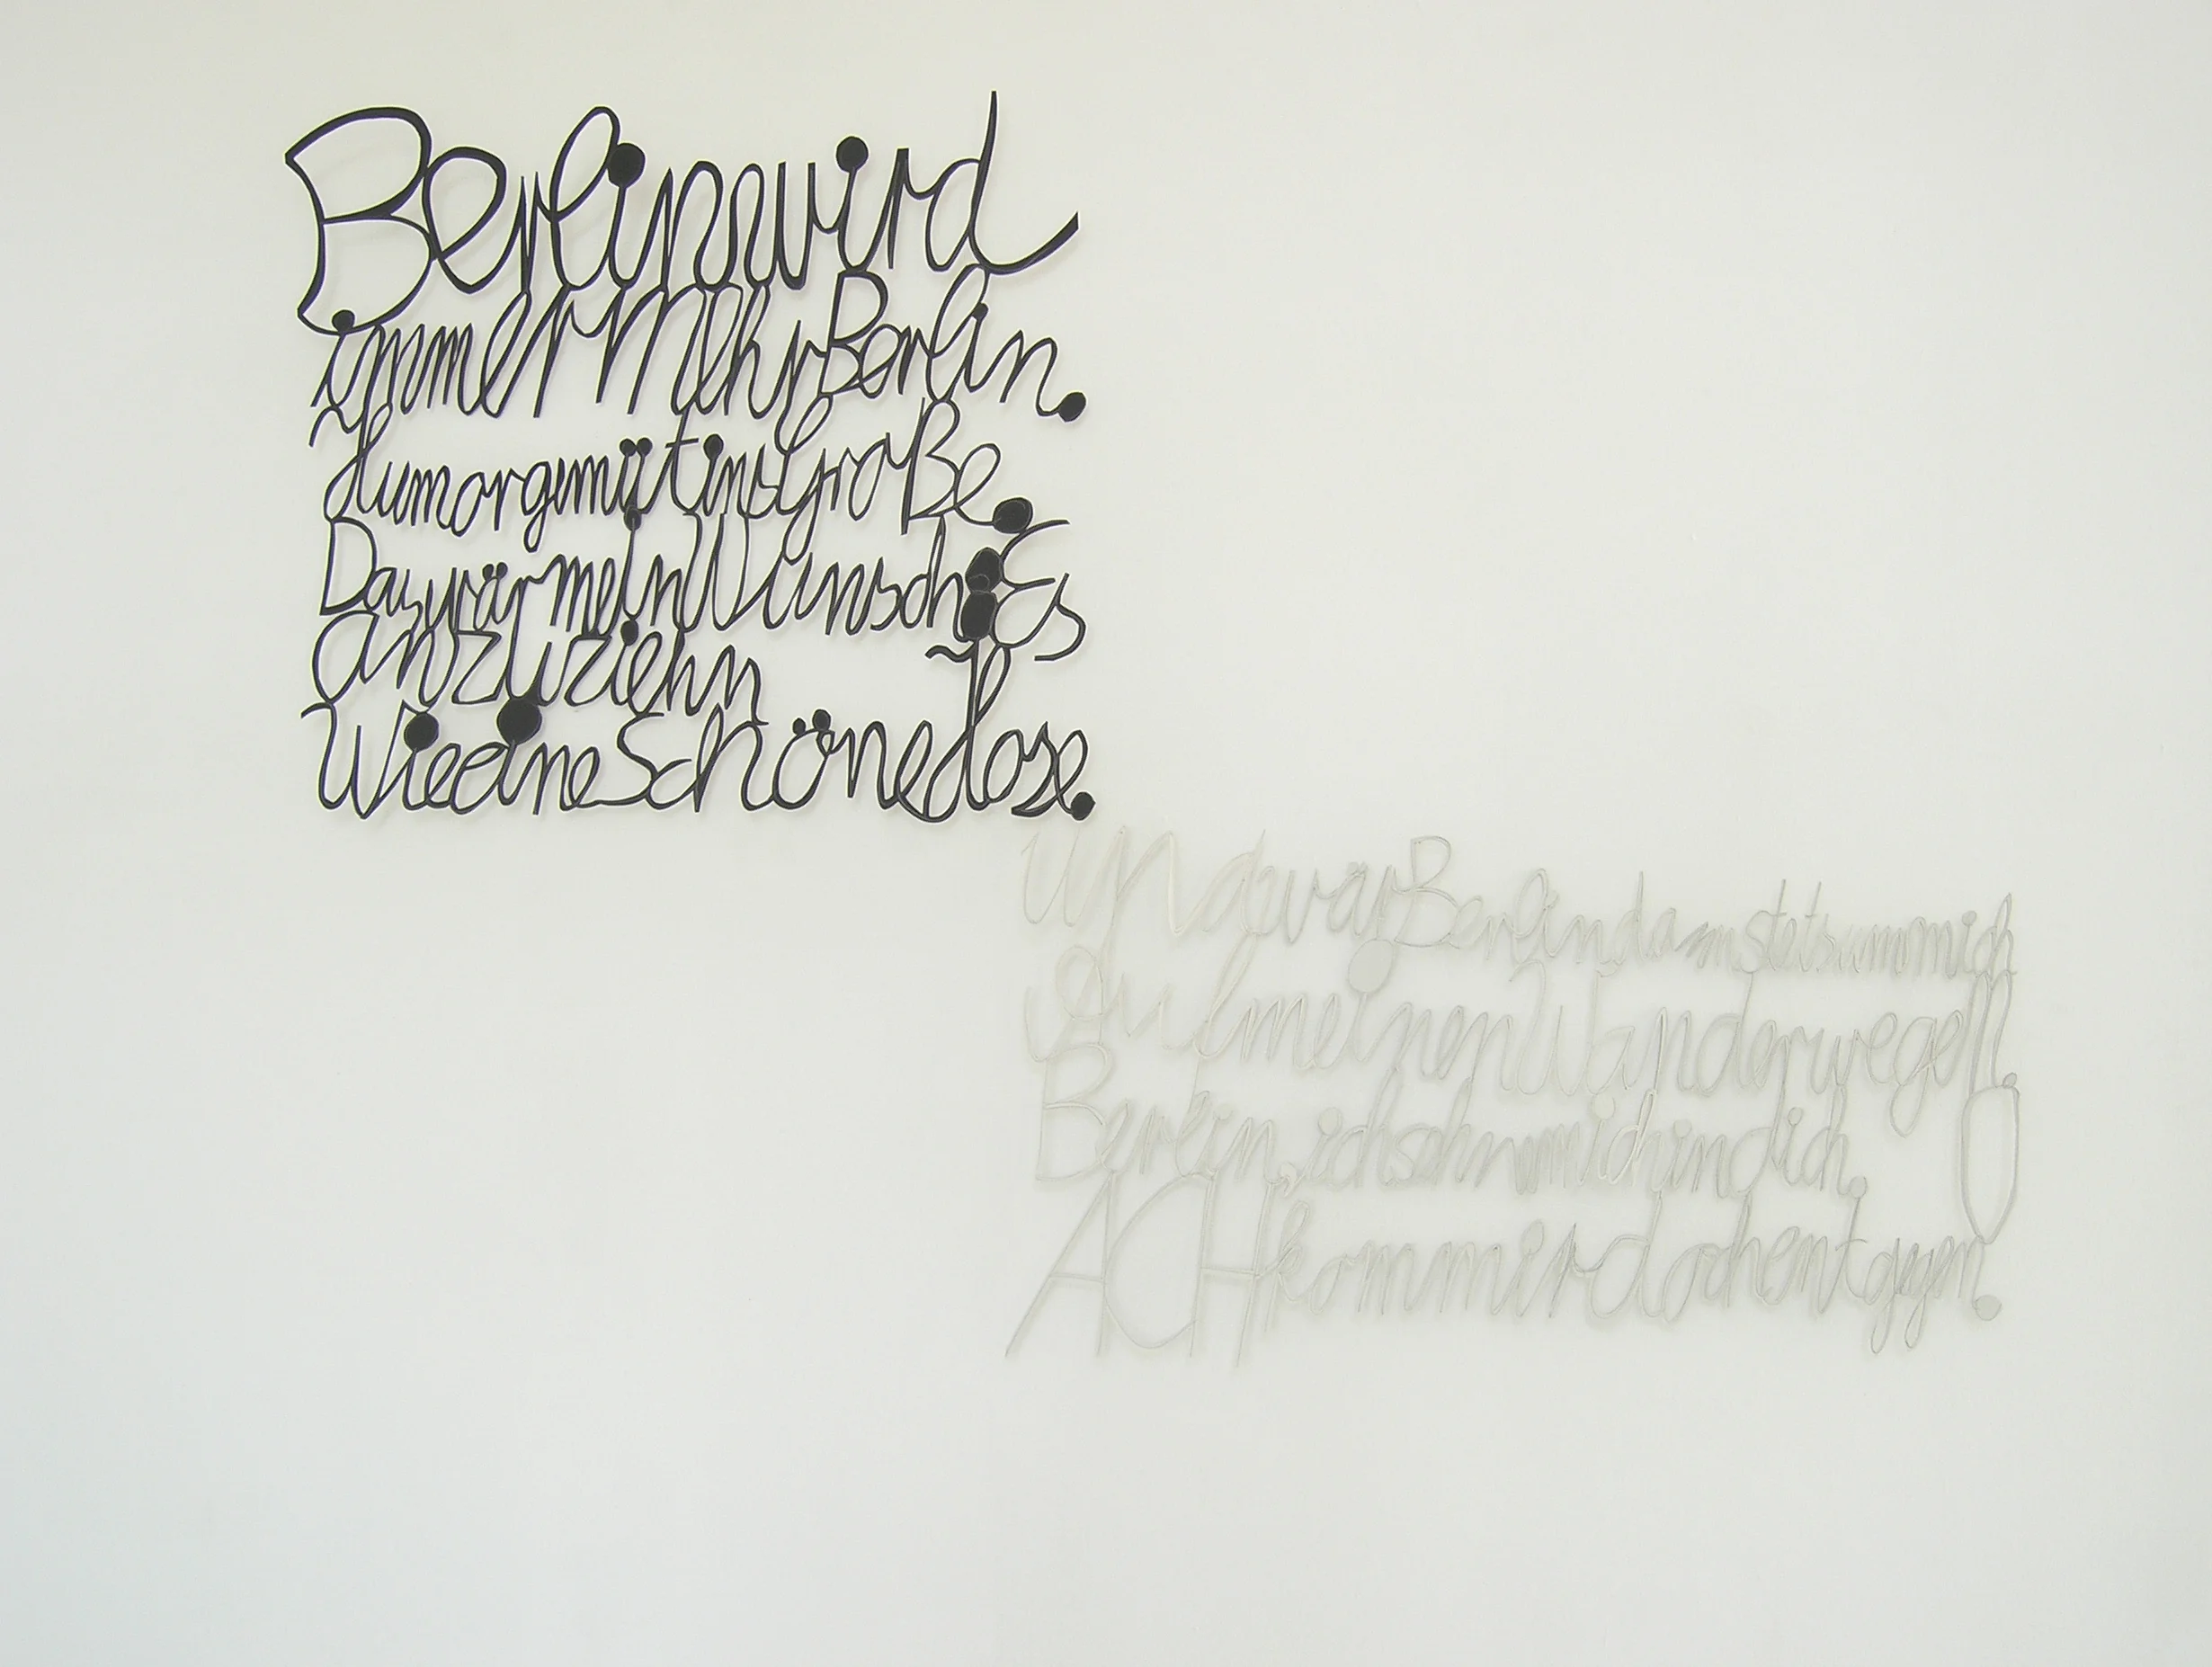 Berlin wird
immer mehr Berlin.
Humorgemüt ins Große.
Das wär mein Wunsch: Es
anzuziehn
Wie eine Schöne Hose.
Und wär Berlin dann stets um mich
Auf meinen Wanderwegen.
Berlin, ich sehne mich in dich.
ACH komm mir doch entgegen.